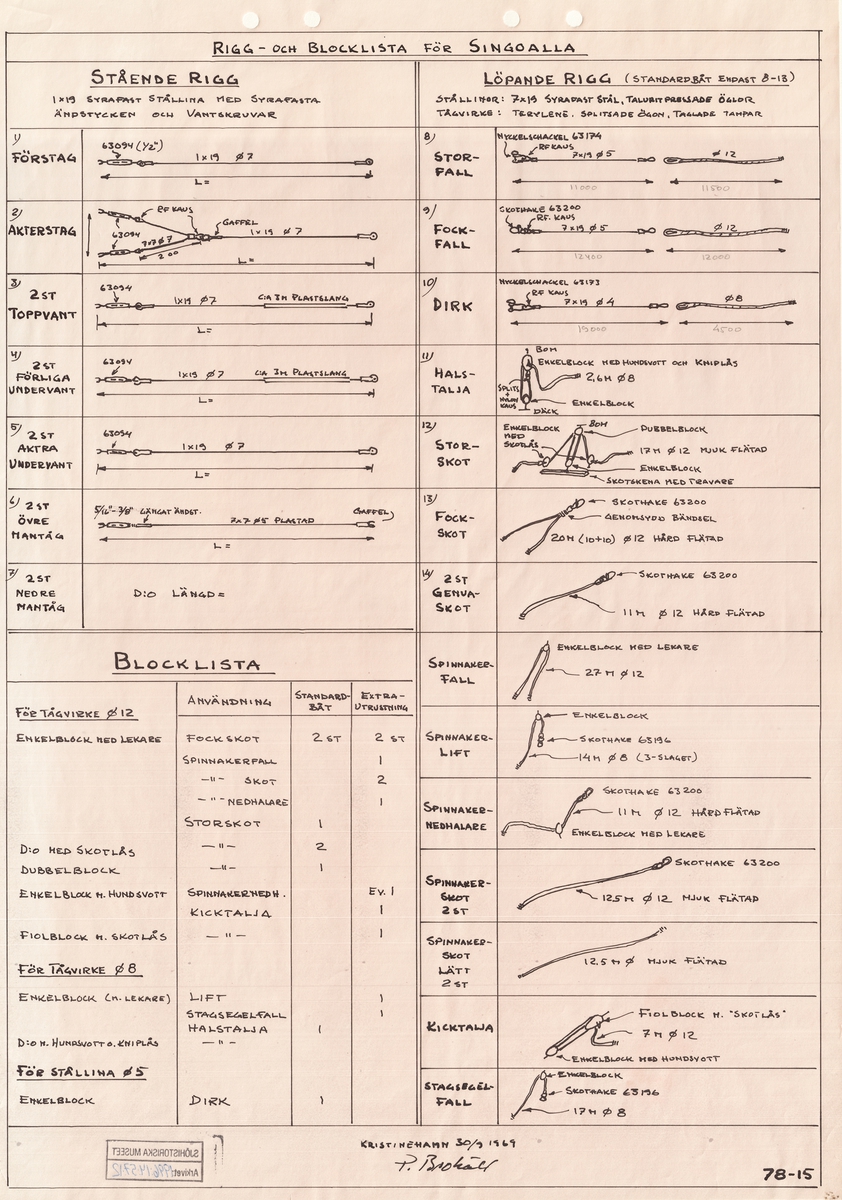 RIGG - OCH BLOCKLISTA FÖR SINGOALLA
STÅENDE RIGG
1×19 SYRAFAST STÅLLINA MED SYRAFASTA
ÄNDSTYCKEN OCH VANTSKRUVAR
1)
FÖRSTAG
63094 (1/2")
1×19 Ø7
L=
2)
AKTERSTAG
RF KAUS
GAFFEL
63094
7×7 Ø7
200
1×19 Ø7
L=
3)
2 ST
TOPPVANT
63094
1×19 Ø7
CIA 3M PLASTSLANG
L=
4)
2 ST
FÖRLIGA
UNDERVANT
63094
1×19 Ø7
CIA 3M PLASTSLANG
L=
5)
2 ST
AKTRA
UNDERVANT
63094
1×19 Ø7
L=
6)
2 ST
ÖVRE
MANTÅG
5/16"-3/8" GÄNGAT ÄNDST.
7×7 Ø5 PLASTAD
GAFFEL)
L=
7)
2 ST
NEDRE
MANTÅG
D:O LÄNGD=
BLOCKLISTA
FÖR TÅGVIRKE Ø12
ANVÄNDNING
STANDARD-
BÅT
EXTRA-
UTRUSTNING
ENKELBLOCK MED LEKARE FOCKSKOT 2 ST 2 ST
SPINNAKERFALL 1
—"— SKOT 2
—"— NEDHALARE 1
STORSKOT 1
D:O MED SKOTLÅS —"— 2
DUBBELBLOCK —"— 1
ENKELBLOCK M. HUNDSVOTT SPINNAKERNEDH. EV. 1
KICKTALJA 1
FIOLBLOCK M. SKOTLÅS —"— 1
FÖR TÅGVIRKE Ø8
ENKELBLOCK (M. LEKARE) LIFT 1
STAGSEGELFALL 1
HALSTALJA 1
D:O M. HUNDSVOTT O. KNIPLÅS —"—
FÖR STÅLLINA Ø5
ENKELBLOCK DIRK 1
LÖPANDE RIGG (STANDARDBÅT ENDAST 8-13)
STÅLLINOR: 7×19 SYRAFAST STÅL, TALURITPRESSADE ÖGLOR
TÅGVIRKE: TERYLENE. SPLITSADE ÖGON, TAGLADE TAMPAR
8)
STOR-
FALL
NYCKELSCHACKEL 63174
RF KAUS
7×19 Ø5
Ø12
11000
11500
9)
FOCK-
FALL
SKOTHAKE 63200
RF. KAUS
7×19 Ø5
Ø12
12400
12000
10)
DIRK
NYCKELSCHACKEL 63173
RF KAUS
7×19 Ø4
Ø8
19000
4500
11)
HALS-
TALJA
BOM
ENKELBLOCK MED HUNDSVOTT OCH KNIPLÅS
2,6M Ø8
SPLITS
+
NYLON
KAUS
ENKELBLOCK
DÄCK
12)
STOR-
SKOT
ENKELBLOCK
MED
SKOTLÅS
BOM
DUBBELBLOCK
17M Ø12 MJUK FLÄTAD
ENKELBLOCK
SKOTSKENA MED TRAVARE
13)
FOCK-
SKOT
SKOTHAKE 63200
GENOMSYDD BÄNDSEL
20M (10+10) Ø12 HÅRD FLÄTAD
14)
2 ST
GENUA-
SKOT
SKOTHAKE 63200
11M Ø12 HÅRD FLÄTAD
SPINNAKER-
FALL
ENKELBLOCK MED LEKARE
27M Ø12
SPINNAKER-
LIFT
ENKELBLOCK
SKOTHAKE 63196
14M Ø8 (3-SLAGET)
SPINNAKER-
NEDHALARE
SKOTHAKE 63200
11M Ø12 HÅRD FLÄTAD
ENKELBLOCK MED LEKARE
SPINNAKER-
SKOT
2 ST
SKOTHAKE 63200
12.5M Ø12 MJUK FLÄTAD
SPINNAKER-
SKOT
LÄTT
2 ST
12.5M Ø MJUK FLÄTAD
KICKTALJA
FIOLBLOCK M. "SKOTLÅS"
7M Ø12
ENKELBLOCK MED HUNDSVOTT
STAGSEGEL-
FALL
ENKELBLOCK
SKOTHAKE 63196
17M Ø8
KRISTINEHAMN 30/9 1969
SJÖHISTORISKA MUSEET
Arkivet:
78-15